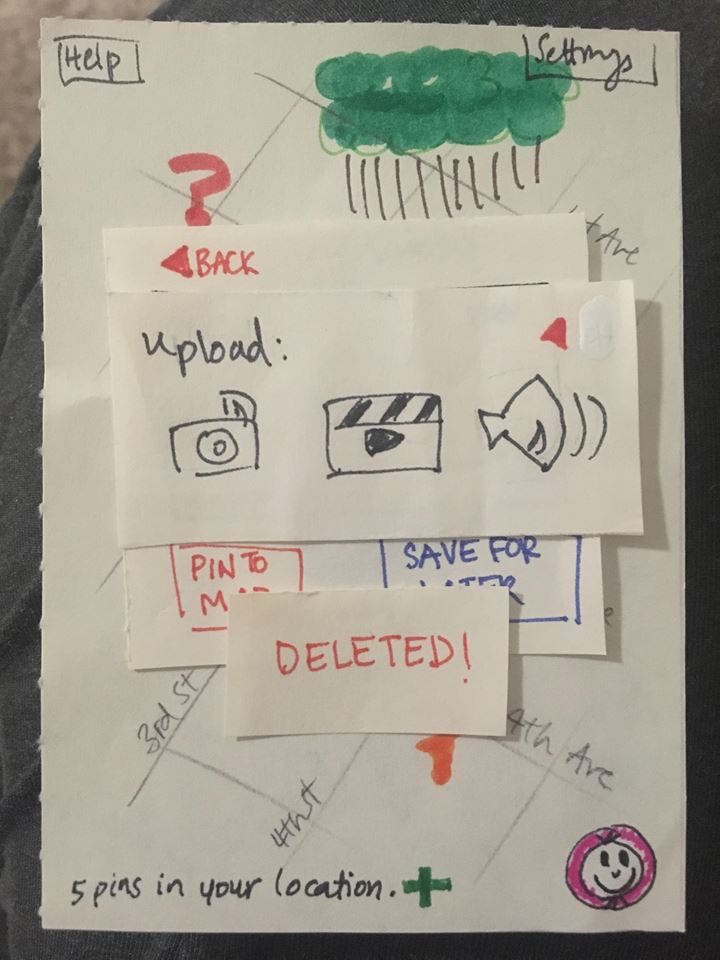 Help
Settings
?
BACK
Upload:
PIN TO
SAVE FOR
LATER
DELETED!
3rd St
4th Ave
4th St
5 pins in your location. +